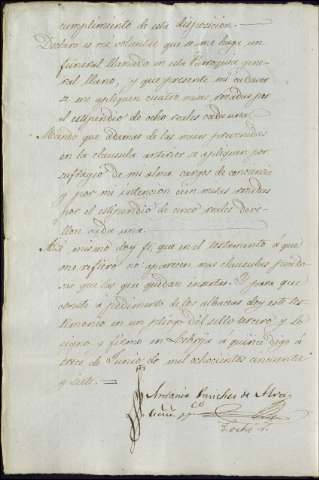 cumplimiento de esta disposicion.—
Declaro es mi voluntad que se me haga un
funeral llamado en esta Parroquia gene-
ral llano, y que presente mi cadaver
se me apliquen cuatro misas rezadas por
el estipendio de ocho reales cada una.
Mando que ademas de las misas prevenidas
en la clausula anterior se apliquen por
sufragio de mi alma cargos de conciencia
y por mi intencion cien misas rezadas
por el estipendio de cinco reales de ve-
llon cada una.—
Asi mismo doy fé, que en el testamento á que
me refiero no aparecen mas clausulas piado-
sas que las que quedan insertas. Y para que
conste á pedimento de los albaceas doy este tes-
timonio en un pliego del sello tercero y lo
signo y firmo en Lebrija á quince digo á
trece de Junio de mil ochocientos cincuenta
y siete.—
Antonio Sanchez de Alva